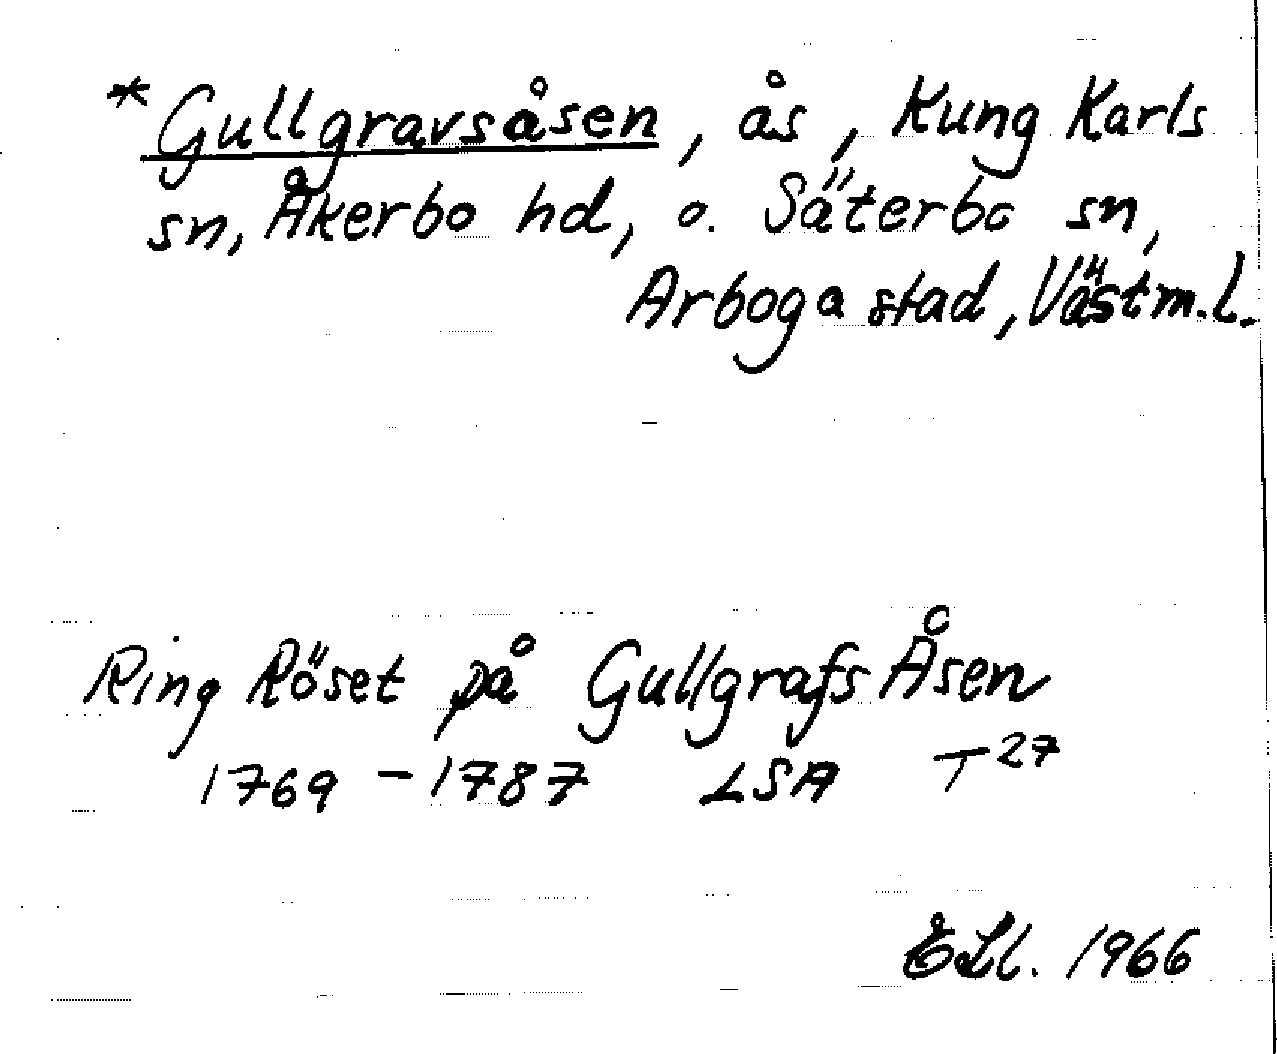 *Gullgravsåsen, ås, Kung Karls
sn, Åkerbo hd, o. Säterbo sn,
Arboga stad, Västm.l.
Ring Röset på Gullgrafs Åsen
1769 – 1787 LSA T 27
1966